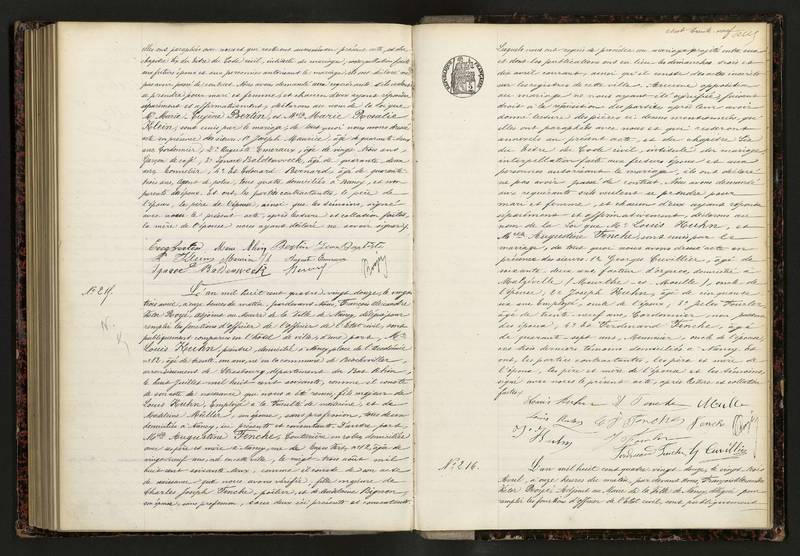 elles ont, paraphées avec nous et qui resteront annexées au présent acte, et du
chapitre six du titre du Code civil, intitulé du mariage, interpellation faite
aux futurs époux et aux personnes autorisant le mariage, ils ont déclaré ne
pas avoir passé de contrat. Nous avons demandé aux requérants s'ils veulent
se prendre pour mari et femme, et chacun d'eux ayant répondu
séparément et affirmativement, déclarons au nom de la loi que
Mr Marie Eugène Bertin, et Melle Marie Rosalie
Klein, sont unis par le mariage. De tout quoi nous avons dressé
acte en présence des sieurs 1° Joseph Maurice, âgé de quarante
ans, Cordonnier, 2° Auguste Emeraux, âgé de vingt trois ans,
Garçon de café, 3° Ignace Baldenweck, âgé de quarante deux
ans, Tonnelier, 4° et Edouard Bernard, âgé de quarante
trois ans, Agent de police, tous quatre domiciliés à Nancy, et non
parents des époux. Et ont, les parties contractantes, le père de
l'époux, le père de l'épouse, ainsi que les témoins, signé
avec nous le présent acte, après lecture et collation faites,
la mère de l'épouse nous ayant déclaré ne savoir signer.
Bertin
Klein Maurice
Ignace Baldenweck
N° 215.
L'an mil huit cent quatre vingt douze, le vingt
trois avril, à onze heures du matin, pardevant Nous, François Alexandre
Victor Boyé, adjoint au Maire de la Ville de Nancy, délégué pour
remplir les fonctions d'officier de l'officier de l'État civil, sont
publiquement comparus en l'hôtel de ville, d'une part, Mr
Louis Huhn, peintre, domicilié à Nancy, place de l'Académie
n° 12, âgé de trente un ans, né en la commune de Bischwiller,
arrondissement de Strasbourg, département du Bas Rhin,
le huit juillet mil huit cent soixante, comme il conste
de son acte de naissance qui nous a été remis, fils majeur de
Louis Huhn, Employé à la Faculté de médecine, et de
Madeleine Müller, son épouse, sans profession, tous deux
domiciliés à Nancy, ici présents et consentants. D'autre part,
Melle Augustine Fenche, Couturière en robes, domiciliée
avec ses père et mère à Nancy, rue de n° 12, âgée de
vingt neuf ans, née en cette ville, le vingt trois août mil
huit cent soixante deux, comme il conste de son acte
de naissance que nous avons vérifié, fille majeure de
Charles Joseph Fenche, potier, et de Madeleine Bignon,
son épouse, sans profession, tous deux ici présents et consentants.
cent trente neuf
Lesquels nous ont requis de procéder au mariage projeté entre eux
et dont les publications ont eu lieu les dimanches trois et
dix avril courant, ainsi qu'il conste des actes inscrits
sur les registres de cette ville. Aucune opposition
au mariage ne nous ayant été signifiée, faisant
droit à la réquisition des parties, après leur avoir
donné lecture des pièces ci-dessus mentionnées, qu'
elles ont paraphées avec nous et qui resteront
annexées au présent acte, et du chapitre six
du titre du Code civil, intitulé du mariage,
interpellation faite aux futurs époux et aux
personnes autorisant le mariage, ils ont déclaré
ne pas avoir passé de contrat. Nous avons demandé
aux requérants s'ils veulent se prendre pour
mari et femme, et chacun d'eux ayant répondu
séparément et affirmativement, déclarons au
nom de la loi que Mr Louis Huhn, et
Melle Augustine Fenche, sont unis par le
mariage, de tout quoi nous avons dressé acte en
présence des sieurs 1° Georges Cuvillier, âgé de
soixante deux ans, facteur d'orgues, domicilié à
Malzéville (Meurthe et Moselle), oncle de
l'épouse, 2° Joseph Huhn, âgé de cinquante
ans, Employé, oncle de l'époux, 3° Jules Fourler
âgé de trente neuf ans, Cordonnier, non parent
des époux, 4° et Ferdinand Fenche, âgé
de quarante sept ans, Menuisier, oncle de l'épouse,
ces trois derniers témoins domiciliés à Nancy. Et
ont, les parties contractantes, les père et mère de
l'époux, les père et mère de l'épouse et les témoins,
signé avec nous le présent acte, après lecture et collation
faites.
Louis Huhn A. Fenche Mull
Louis Huhn C J Fenche Fenche
J. Huhn
Ferdinand Fenche G Cuvillier
N° 216.
L'an mil huit cent quatre vingt douze, le vingt trois
Avril, à onze heures du matin, par devant Nous, François Alexandre
Victor Boyé, Adjoint au Maire de la Ville de Nancy, délégué pour
remplir les fonctions d'officier de l'état civil, sont publiquement